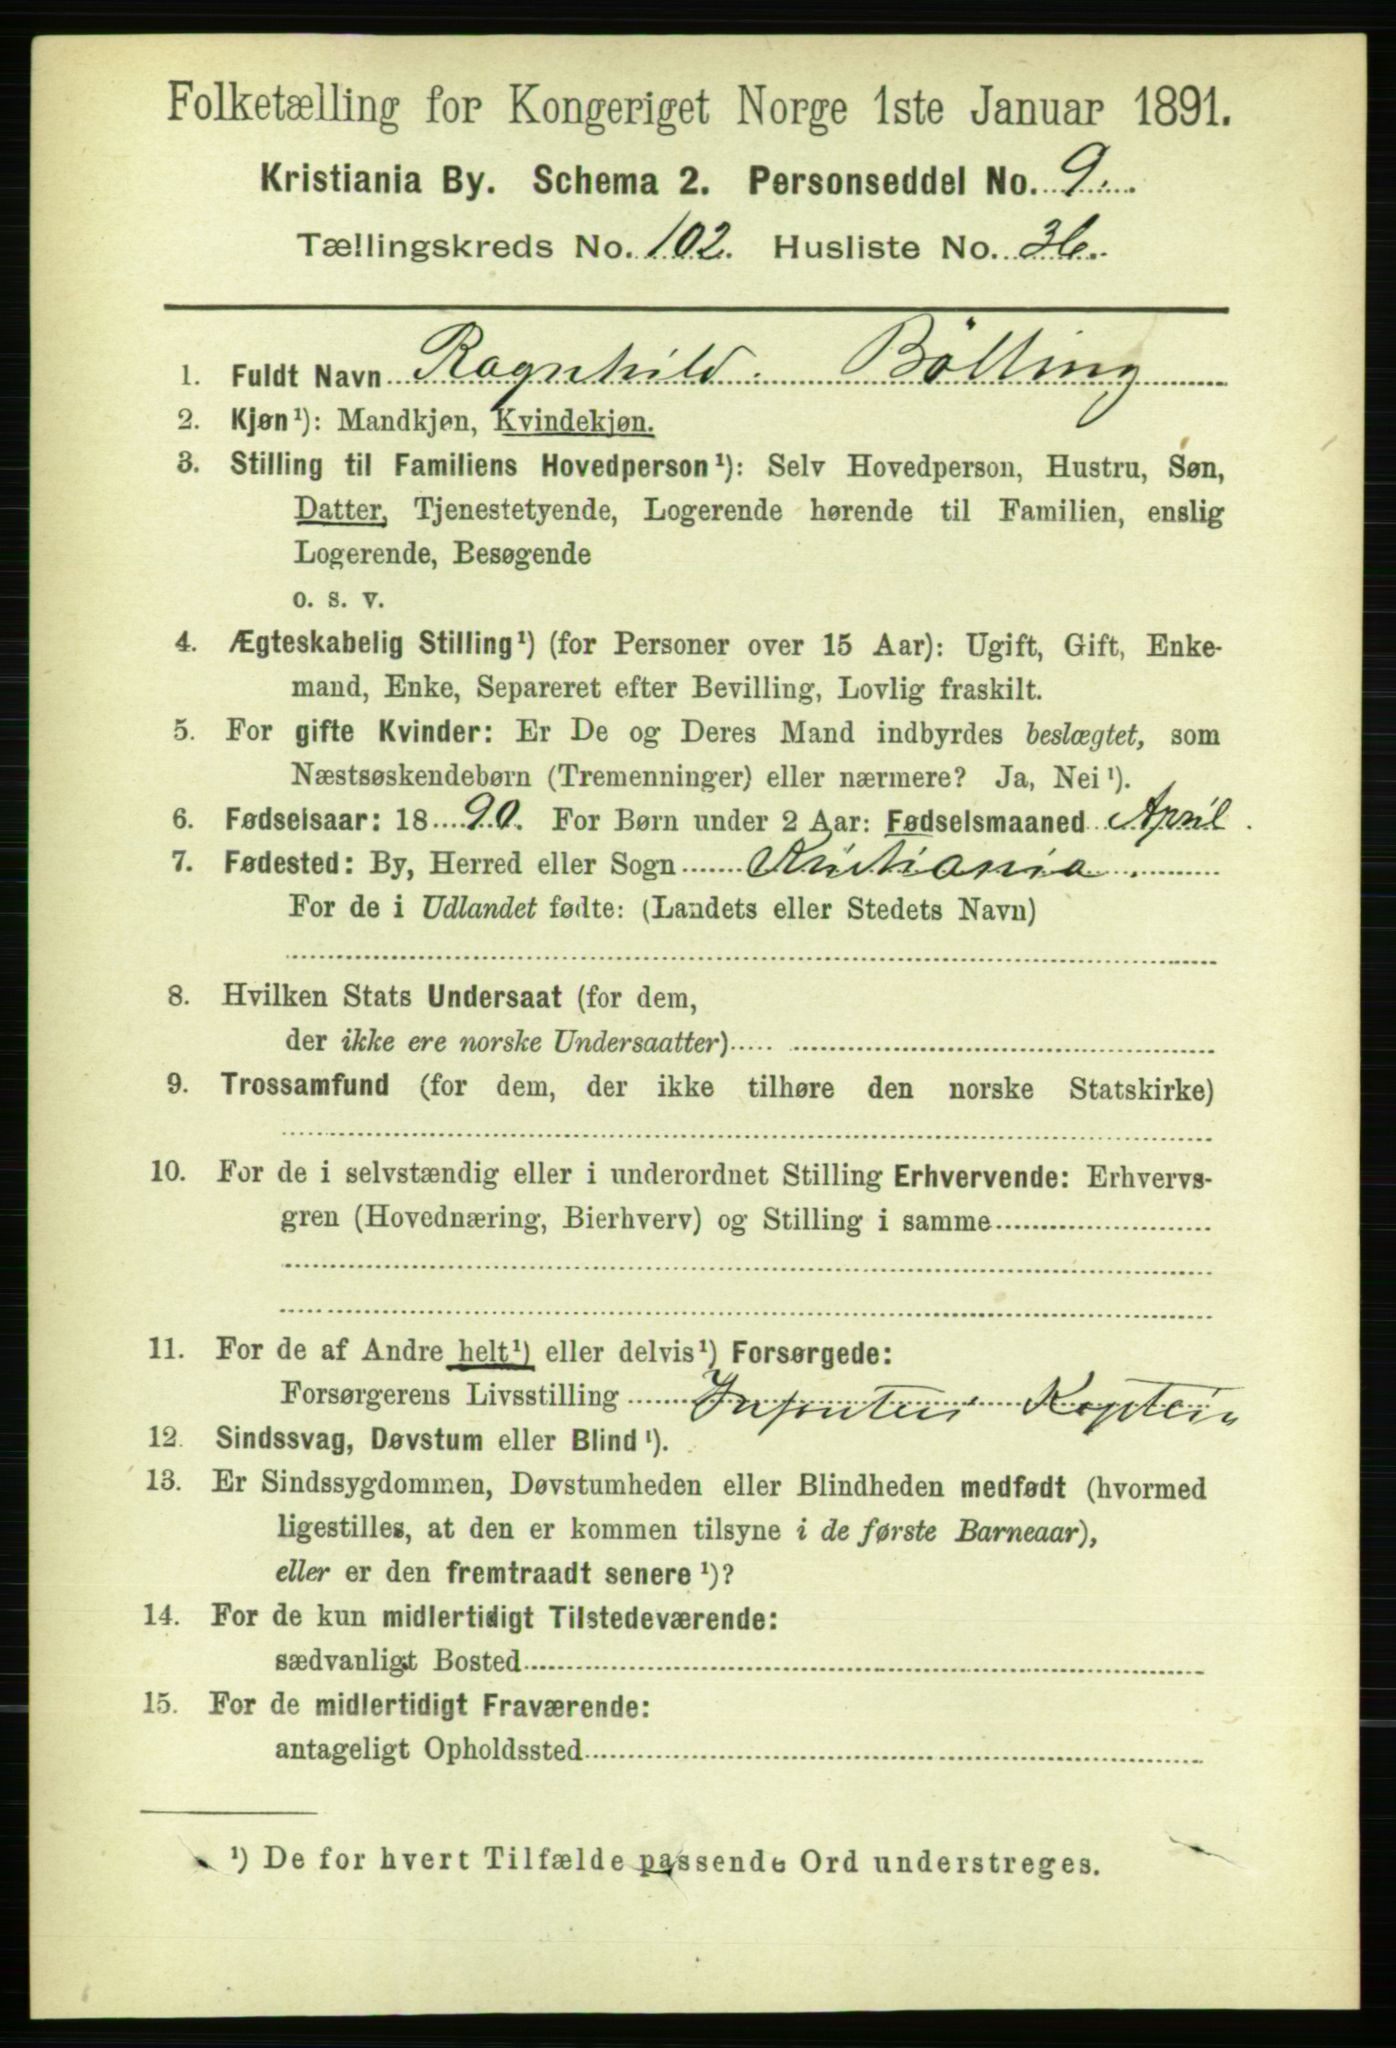 Folketælling for Kongeriget Norge 1ste Januar 1891.
Kristiania By. Schema 2. Personseddel No. 9.
Tællingskreds No. 102. Husliste No. 36.
1. Fuldt Navn Ragnhild Bölling
2. Kjøn¹): Mandkjøn, Kvindekjøn.
3. Stilling til Familiens Hovedperson¹): Selv Hovedperson, Hustru, Søn,
Datter, Tjenestetyende, Logerende hørende til Familien, enslig
Logerende, Besøgende
o. s. v.
4. Ægteskabelig Stilling¹) (for Personer over 15 Aar): Ugift, Gift, Enke-
mand, Enke, Separeret efter Bevilling, Lovlig fraskilt.
5. For gifte Kvinder: Er De og Deres Mand indbyrdes beslægtet, som
Næstsøskendebørn (Tremenninger) eller nærmere? Ja, Nei¹).
6. Fødselsaar: 1890. For Børn under 2 Aar: Fødselsmaaned April.
7. Fødested: By, Herred eller Sogn Kristiania.
For de i Udlandet fødte: (Landets eller Stedets Navn)
8. Hvilken Stats Undersaat (for dem,
der ikke ere norske Undersaatter)
9. Trossamfund (for dem, der ikke tilhøre den norske Statskirke)
10. For de i selvstændig eller i underordnet Stilling Erhvervende: Erhvervs-
gren (Hovednæring, Bierhverv) og Stilling i samme
11. For de af Andre helt¹) eller delvis¹) Forsørgede:
Forsørgerens Livsstilling Infanteri Kaptein
12. Sindssvag, Døvstum eller Blind¹).
13. Er Sindssygdommen, Døvstumheden eller Blindheden medfødt (hvormed
ligestilles, at den er kommen tilsyne i de første Barneaar),
eller er den fremtraadt senere¹)?
14. For de kun midlertidigt Tilstedeværende:
sædvanligt Bosted
15. For de midlertidigt Fraværende:
antageligt Opholdssted
¹) De for hvert Tilfælde passende Ord understreges.